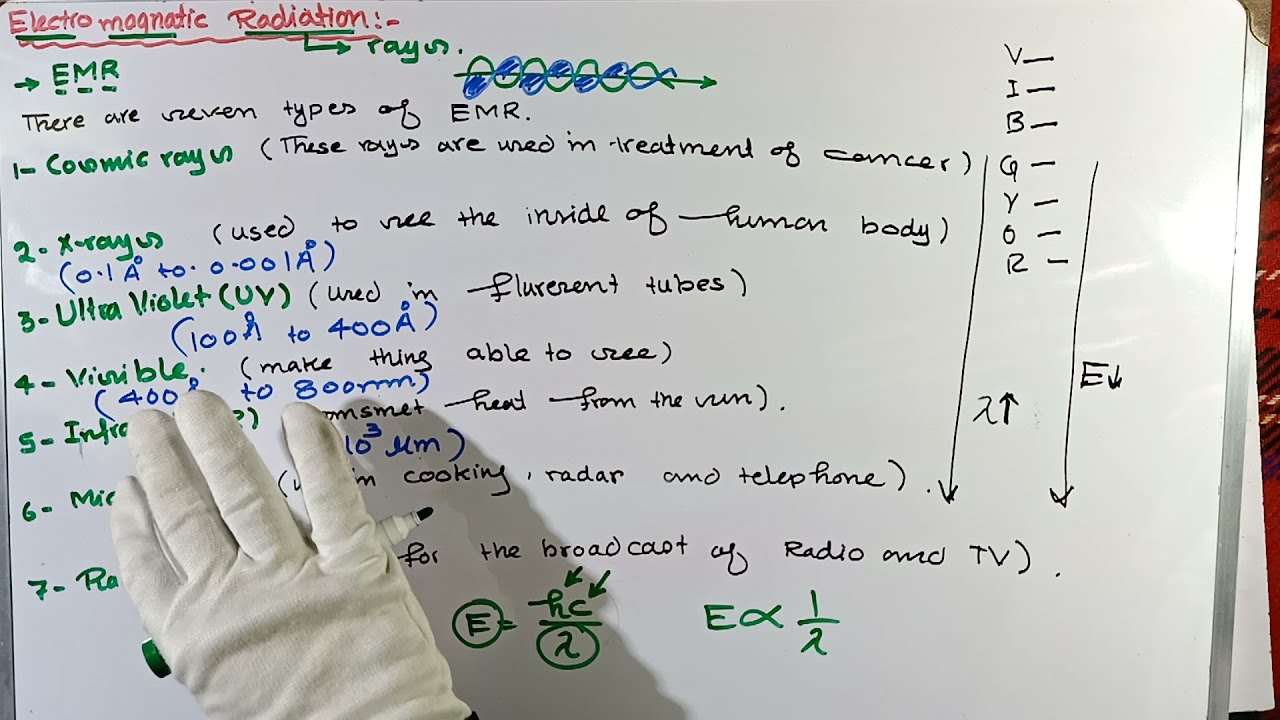 Electro magnatic Radiation:-
→ rays.
→ EMR
There are seven types of EMR.
1- Cosmic rays (These rays are used in treatment of cancer)
2- X-rays (used to see the inside of human body)
(0.1Å to 0.001Å)
3- Ultra Violet (UV) (used in flurerent tubes)
(100Å to 400Å)
4- Visible. (make thing able to see)
(400 to 800nm)
5- heat from the sun).
10³ μm)
6- in cooking, radar and telephone).
7- for the broadcast of Radio and TV).
E = hc/λ
E ∝ 1/λ
V —
I —
B —
G —
Y —
O —
R —
λ↑
E↓